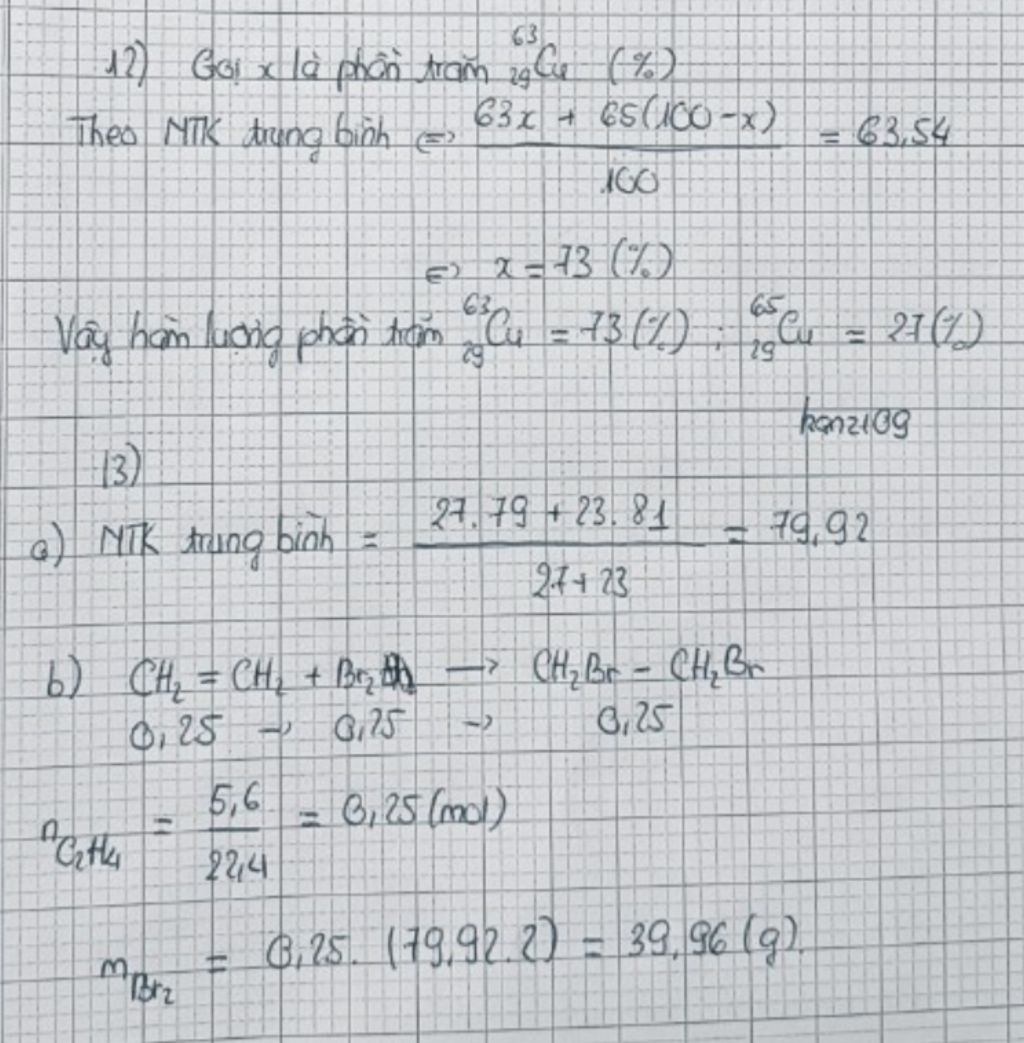 12) Gọi x là phần trăm ⁶³₂₉Cu (%)
Theo NTK trung bình <=> (63x + 65(100-x))/100 = 63,54
<=> x = 73 (%)
Vậy hàm lượng phần trăm ⁶³₂₉Cu = 73(%) ; ⁶⁵₂₉Cu = 27(%)
kanz109
13)
a) NTK trung bình = (27.79 + 23.81)/(27+23) = 79,92
b) CH₂ = CH₂ + Br₂ → CH₂Br - CH₂Br
0,25 → 0,25 → 0,25
n C₂H₄ = 5,6/22,4 = 0,25 (mol)
m Br₂ = 0,25. (79,92.2) = 39,96 (g).